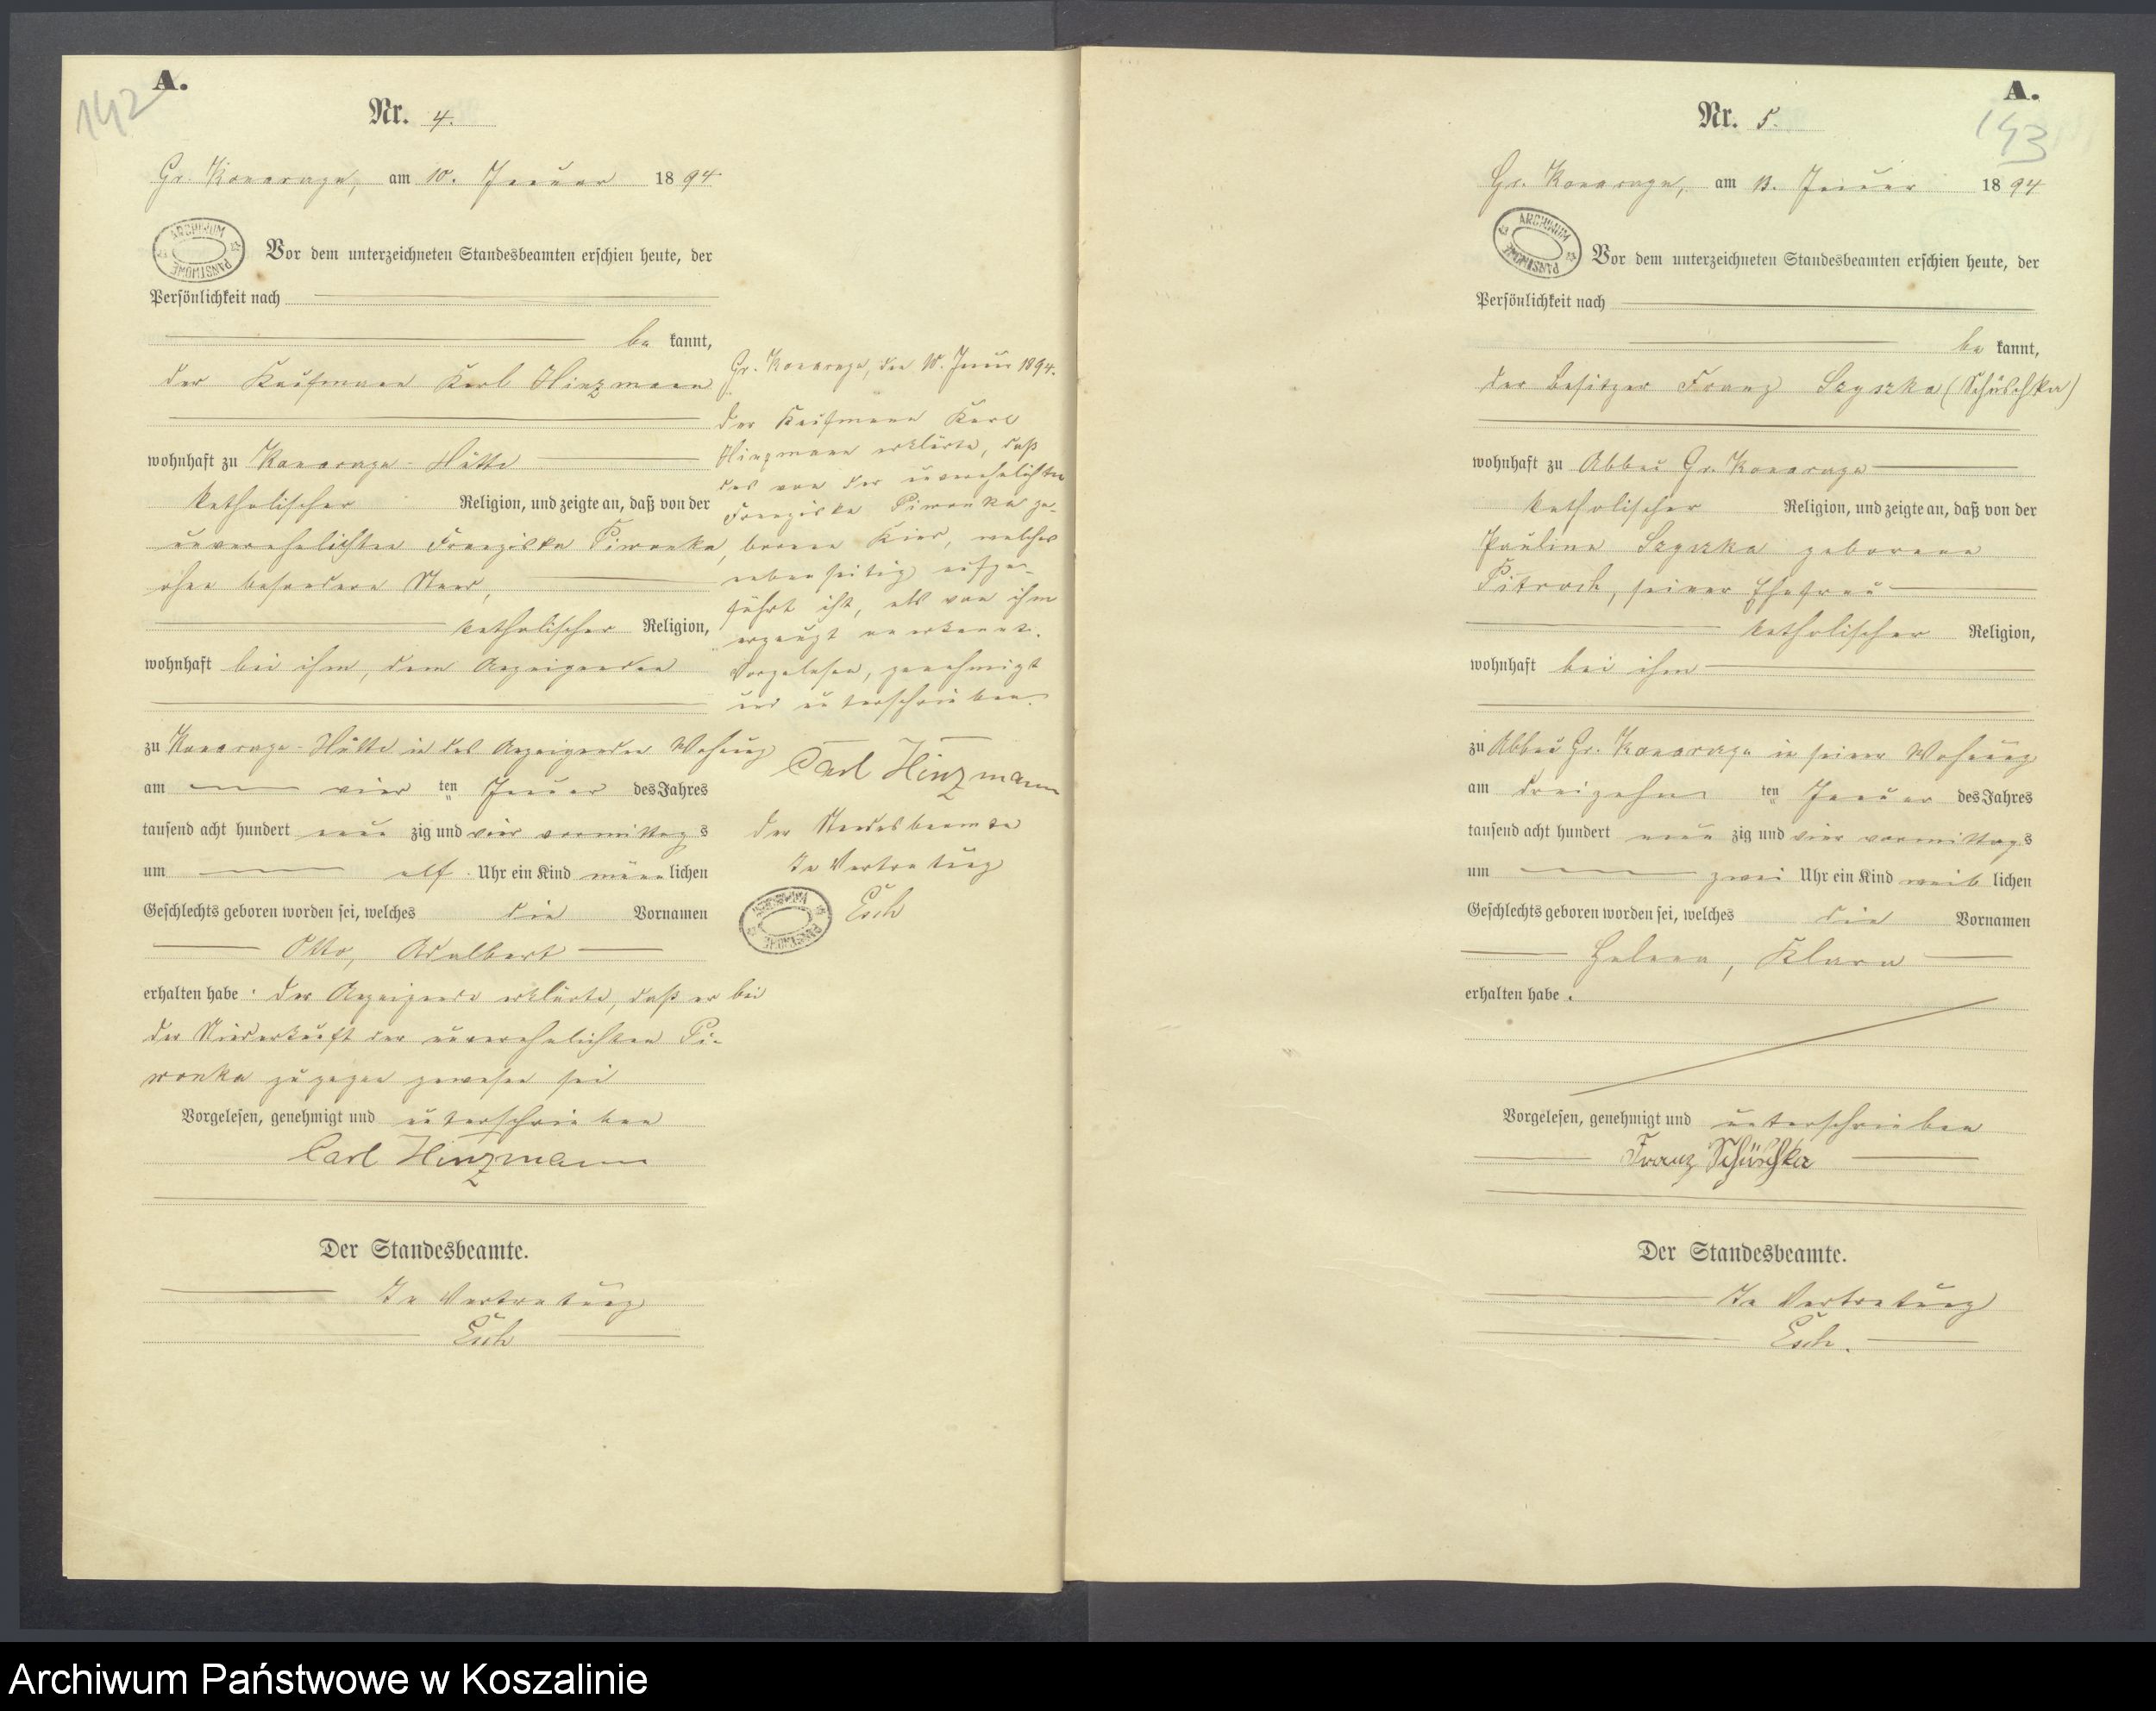 142
A.
Nr. 4.
Gr. Konarzyn, am 10. Januar 1894
ARCHIWUM PAŃSTWOWE
Vor dem unterzeichneten Standesbeamten erschien heute, der
Persönlichkeit nach
be kannt,
der Kaufmann Karl Hinzmann
wohnhaft zu Konarzyn-Hütte
katholischer Religion, und zeigte an, daß von der
unverehelichten Franziska Piwonka,
ohne besonderen Stand,
katholischer Religion,
wohnhaft bei ihm, dem Anzeigenden
zu Konarzyn-Hütte in des Anzeigenden Wohnung
am vier ten Januar des Jahres
tausend acht hundert neun zig und vier vormittags
um elf Uhr ein Kind männlichen
Geschlechts geboren worden sei, welches die Vornamen
Otto, Adalbert
erhalten habe. Der Anzeigende erklärte, daß er bei
der Niederkunft der unverehelichten Pi-
wonka zugegen gewesen sei
Vorgelesen, genehmigt und unterschrieben
Carl Hinzmann
Der Standesbeamte.
In Vertretung
Esch
Gr. Konarzyn, den 10. Januar 1894.
Der Kaufmann Karl
Hinzmann erklärte, daß
das von der unverehelichten
Franziska Piwonka ge-
borene Kind, welches
nebenseitig aufge-
führt ist, als von ihm
erzeugt anerkennt.
Vorgelesen, genehmigt
und unterschrieben.
Carl Hinzmann
Der Standesbeamte
In Vertretung
Esch
ARCHIWUM PAŃSTWOWE
A.
143
Nr. 5.
Gr. Konarzyn, am 13. Januar 1894
ARCHIWUM PAŃSTWOWE
Vor dem unterzeichneten Standesbeamten erschien heute, der
Persönlichkeit nach
be kannt,
der Besitzer Franz Szyszka (Schüschka)
wohnhaft zu Abbau Gr. Konarzyn
katholischer Religion, und zeigte an, daß von der
Pauline Szyszka geborene
Pitroch, seiner Ehefrau
katholischer Religion,
wohnhaft bei ihm
zu Abbau Gr. Konarzyn in seiner Wohnung
am dreizehn ten Januar des Jahres
tausend acht hundert neun zig und vier vormittags
um zwei Uhr ein Kind weiblichen
Geschlechts geboren worden sei, welches die Vornamen
Helena, Klara
erhalten habe.
Vorgelesen, genehmigt und unterschrieben
Franz Schüschka
Der Standesbeamte.
In Vertretung
Esch.
Archiwum Państwowe w Koszalinie